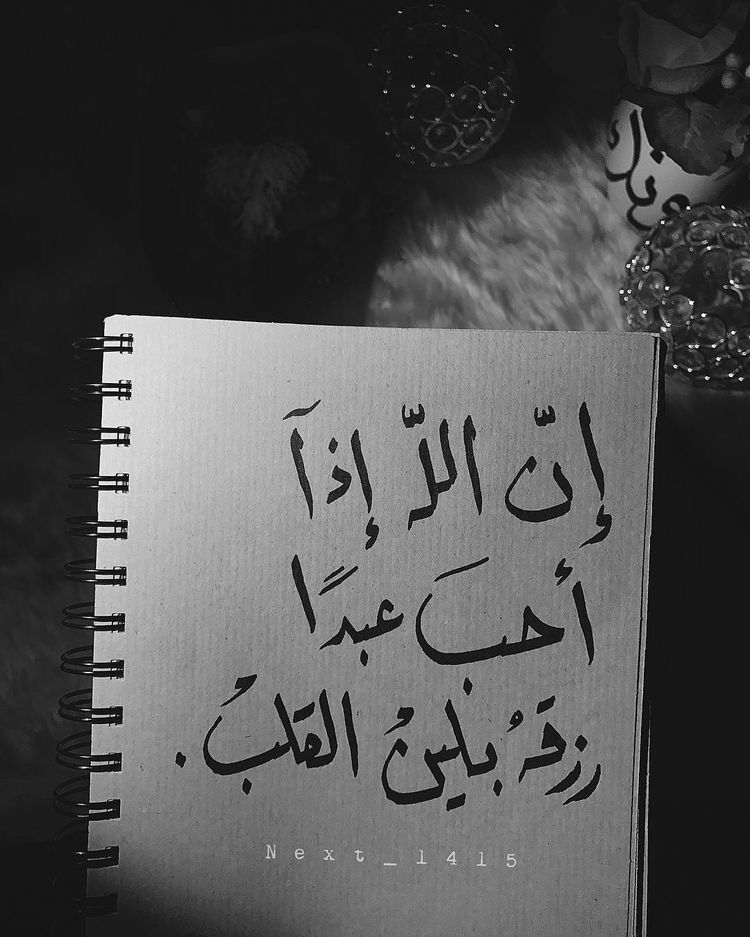 إنّ اللّه إذآ
أحبَ عبدًا
رزقهُ بلينُ القلبُ.
Next_1415